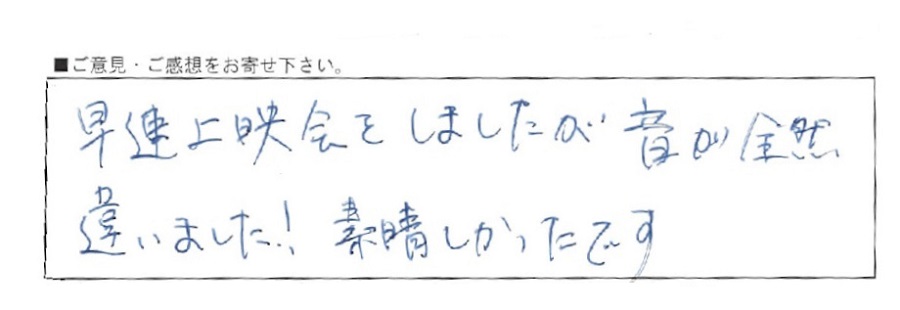 ■ご意見・ご感想をお寄せ下さい。
早速上映会をしましたが音が全然
違いました！素晴しかったです